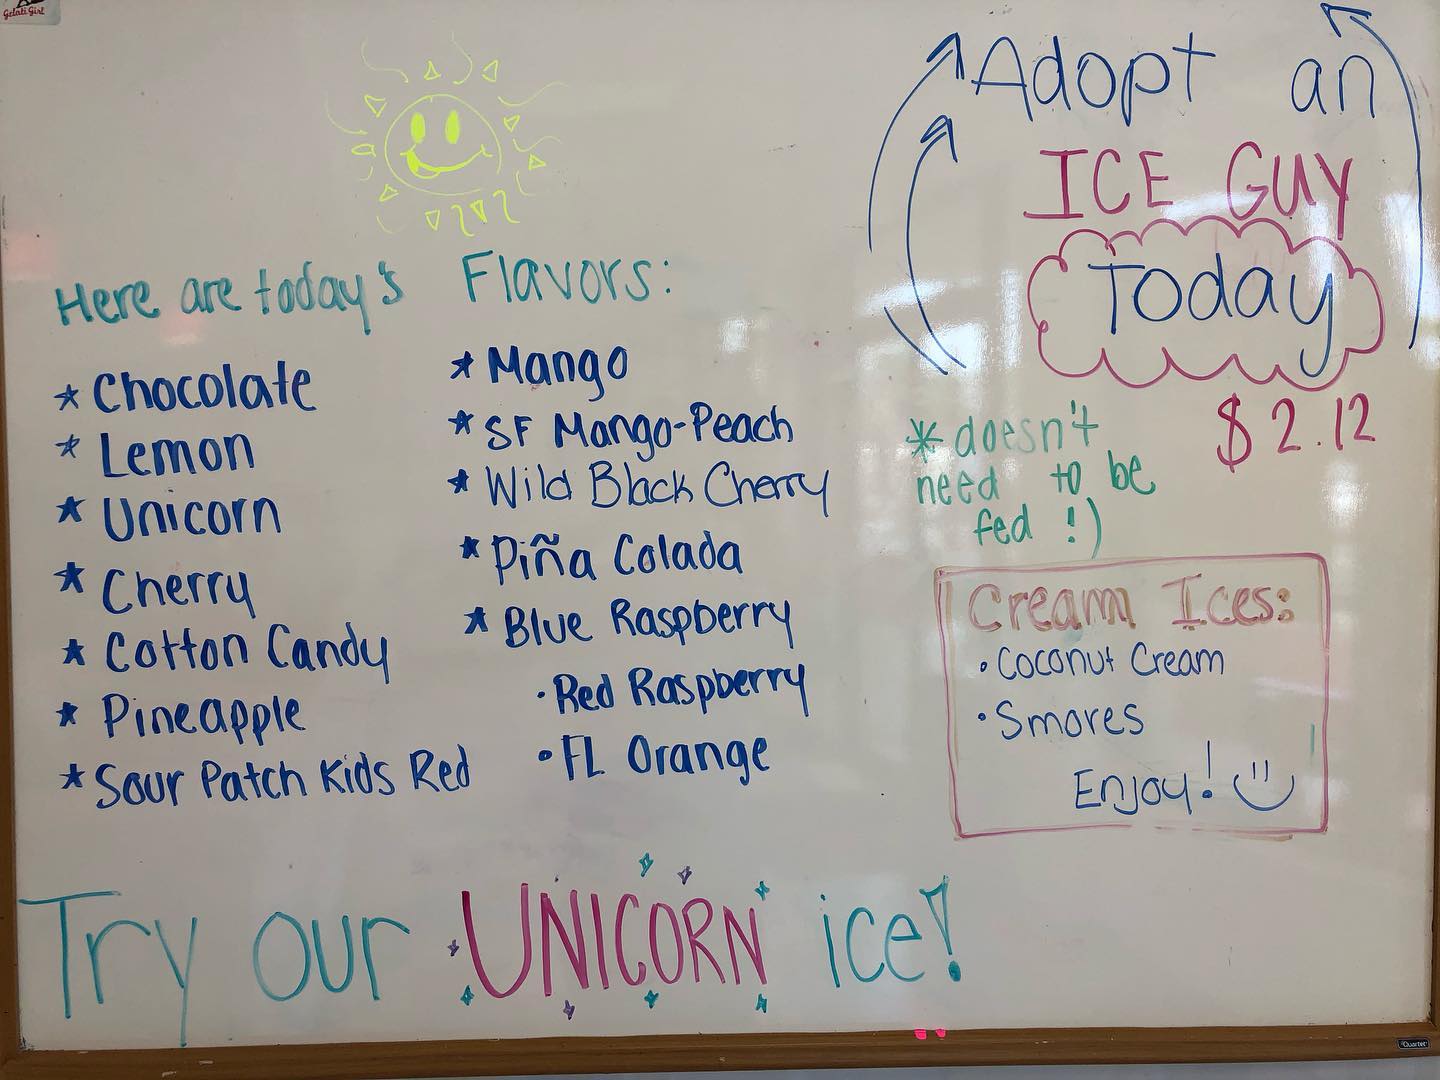 Gelati Girl
Here are today's Flavors:
* Chocolate
* Lemon
* Unicorn
* Cherry
* Cotton Candy
* Pineapple
* Sour Patch Kids Red
* Mango
* SF Mango-Peach
* Wild Black Cherry
* Piña Colada
* Blue Raspberry
• Red Raspberry
• FL Orange
Adopt an
ICE GUY
Today
$2.12
* doesn't
need to be
fed !)
Cream Ices:
• Coconut Cream
• Smores
Enjoy!
Try our UNICORN ice!
Quartet